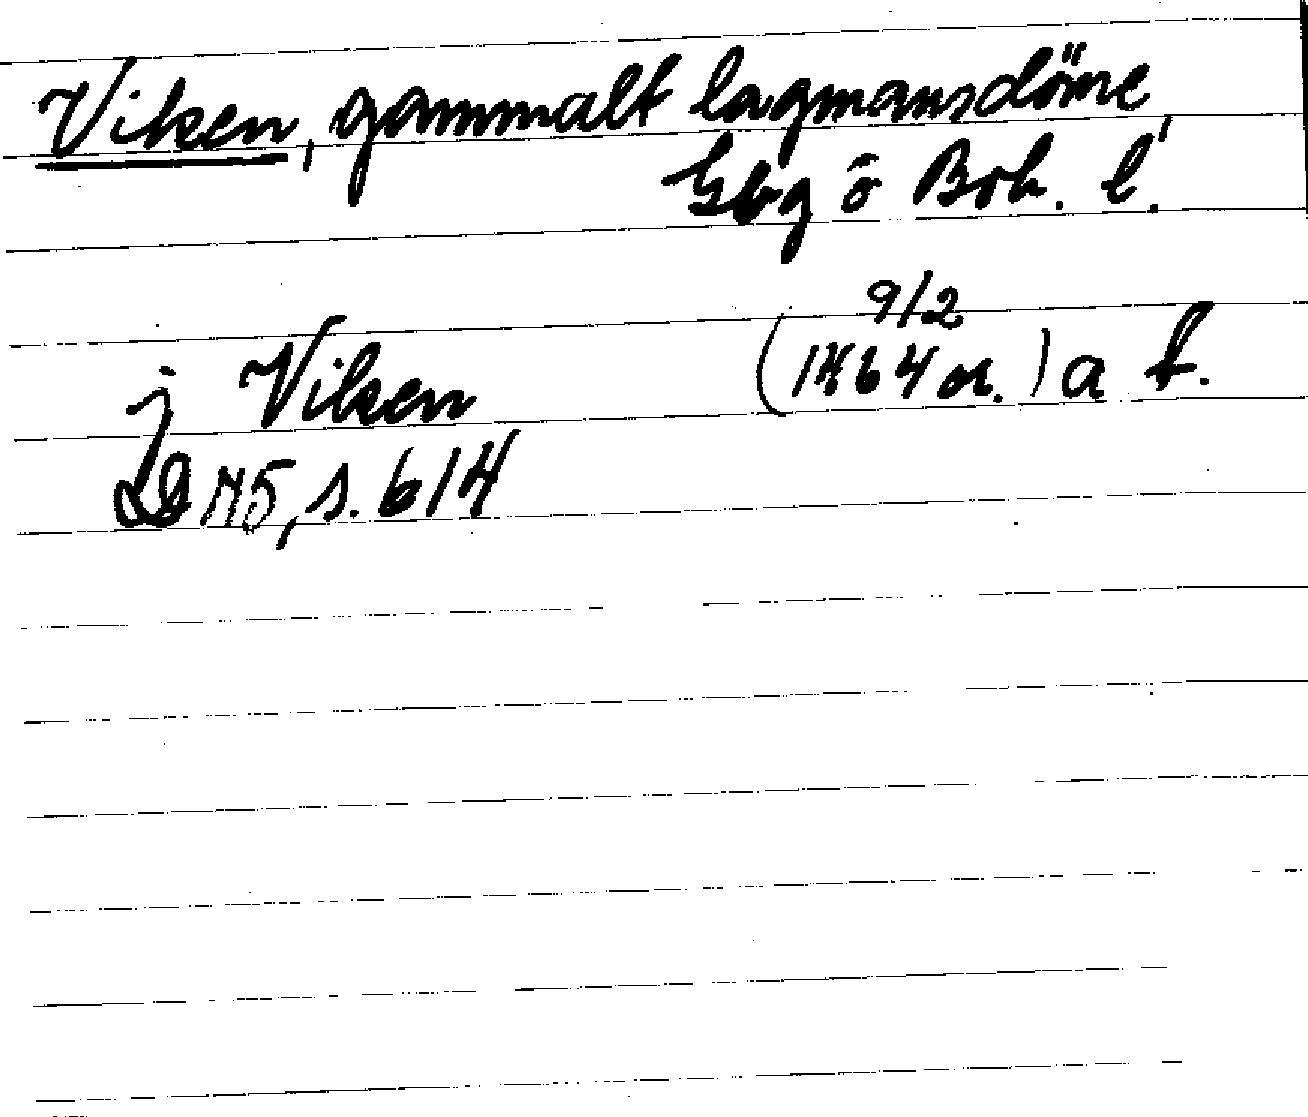 Viken, gammalt lagmansdöme
Gbg o Boh. l.
j Viken (9/2 1464 or.) a f.
DN 5, s. 614